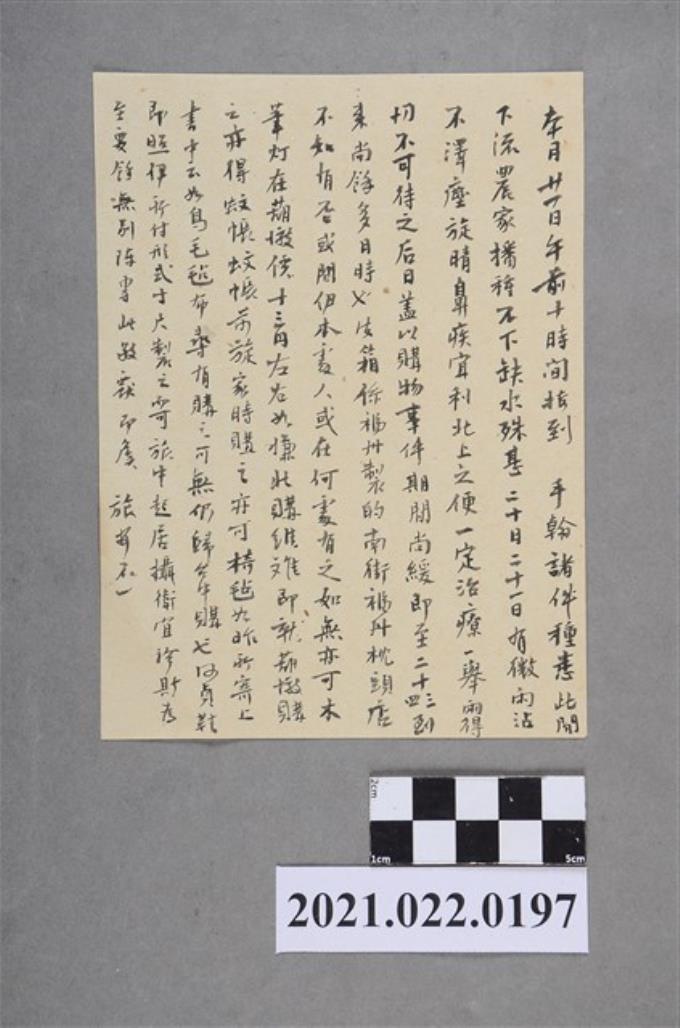 本月廿一日午前十時間接到 手翰諸件種悉此間
下流農家播種不下缺水殊甚二十日二十一日有微雨沾
不澤塵旋晴鼻疾宜利北上之便一定治療一舉兩得
切不可待之后日蓋以購物事件期間尚緩即至二十三四到
東尚餘多日時也皮箱係福州製的南街福州枕頭店
不知有否或問伊本處人或在何處有之如無亦可木
筆灯在葫墩價十三円左右如慊此購維難即就葫墩購
之亦得蚊帳蚊帳前旋家時購之亦可椅毡如昨所寄上
書中云如烏毛毡布尋有購之可無仍歸台中購也阿貞鞋
即照伊所付形式寸尺製之可旅中起居攝衛宜珍斯為
至要餘無別陳專此敬覆即虔 旅安不一
2cm
1cm 5cm
2021.022.0197